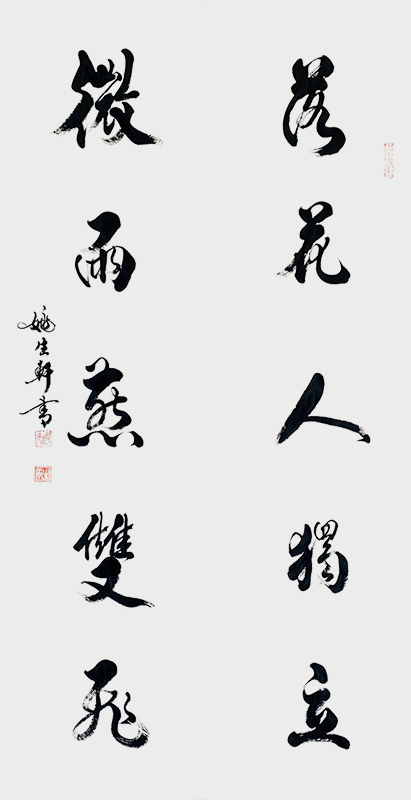 落花人獨立
微雨燕雙飛
姚生軒書